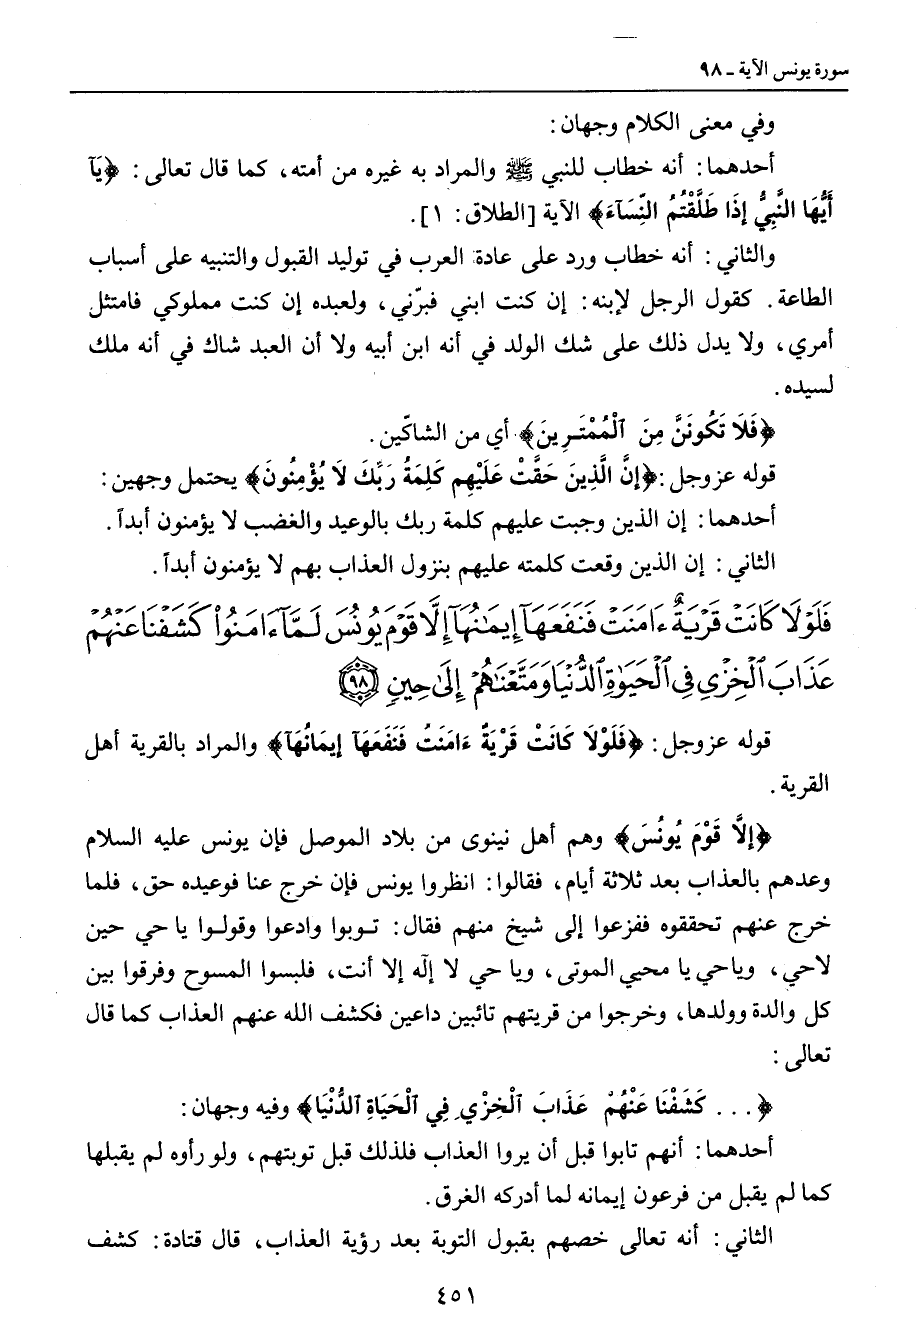 سورة يونس الآية ـ ٩٨
وفي معنى الكلام وجهان:
أحدهما: أنه خطاب للنبي ﷺ والمراد به غيره من أمته، كما قال تعالى: ﴿يَآ
أَيُّهَا النَّبِيُّ إِذَا طَلَّقْتُمُ النِّسَآءَ﴾ الآية [الطلاق: ١].
والثاني: أنه خطاب ورد على عادة العرب في توليد القبول والتنبيه على أسباب
الطاعة. كقول الرجل لإبنه: إن كنت ابني فبرّني، ولعبده إن كنت مملوكي فامتثل
أمري، ولا يدل ذلك على شك الولد في أنه ابن أبيه ولا أن العبد شاك في أنه ملك
لسيده.
﴿فَلَا تَكُونَنَّ مِنَ الْمُمْتَرِينَ﴾ أي من الشاكّين.
قوله عز وجل: ﴿إِنَّ الَّذِينَ حَقَّتْ عَلَيْهِم كَلِمَةُ رَبِّكَ لَا يُؤْمِنُونَ﴾ يحتمل وجهين:
أحدهما: إن الذين وجبت عليهم كلمة ربك بالوعيد والغضب لا يؤمنون أبداً.
الثاني: إن الذين وقعت كلمته عليهم بنزول العذاب بهم لا يؤمنون أبداً.
فَلَوْلَا كَانَتْ قَرْيَةٌ ءَامَنَتْ فَنَفَعَهَآ إِيمَٰنُهَآ إِلَّا قَوْمَ يُونُسَ لَمَّآ ءَامَنُوا۟ كَشَفْنَا عَنْهُمْ
عَذَابَ ٱلْخِزْىِ فِى ٱلْحَيَوٰةِ ٱلدُّنْيَا وَمَتَّعْنَٰهُمْ إِلَىٰ حِينٍ ٩٨
قوله عز وجل: ﴿فَلَوْلَا كَانَتْ قَرْيَةٌ ءَامَنَتْ فَنَفَعَهَآ إِيمَانُهَآ﴾ والمراد بالقرية أهل
القرية.
﴿إِلَّا قَوْمَ يُونُسَ﴾ وهم أهل نينوى من بلاد الموصل فإن يونس عليه السلام
وعدهم بالعذاب بعد ثلاثة أيام، فقالوا: انظروا يونس فإن خرج عنا فوعيده حق، فلما
خرج عنهم تحققوه ففزعوا إلى شيخ منهم فقال: توبوا وادعوا وقولوا يا حي حين
لاحي، وياحي يا محيي الموتى، ويا حي لا إلٓه إلا أنت، فلبسوا المسوح وفرقوا بين
كل والدة وولدها، وخرجوا من قريتهم تائبين داعين فكشف الله عنهم العذاب كما قال
تعالى:
﴿... كَشَفْنَا عَنْهُمْ عَذَابَ الْخِزْيِ فِي الْحَيَاةِ الدُّنْيَا﴾ وفيه وجهان:
أحدهما: أنهم تابوا قبل أن يروا العذاب فلذلك قبل توبتهم، ولو رأوه لم يقبلها
كما لم يقبل من فرعون إيمانه لما أدركه الغرق.
الثاني: أنه تعالى خصهم بقبول التوبة بعد رؤية العذاب، قال قتادة: كشف
٤٥١